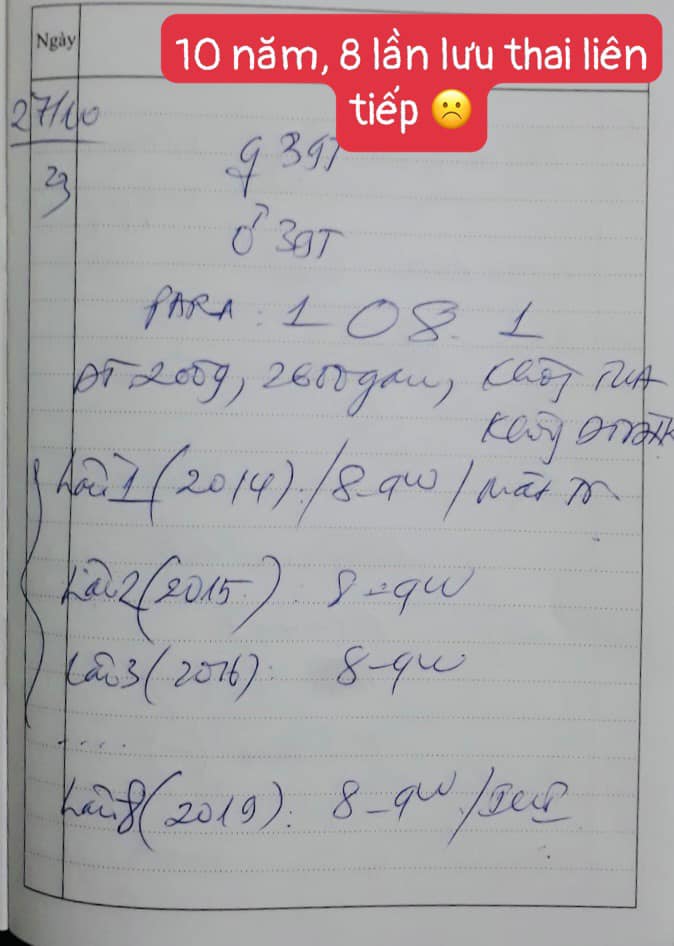 Ngày
10 năm, 8 lần lưu thai liên
tiếp ☹️
27/10
23
♀ 39T
♂ 39T
PARA: 1 0 8 1
ĐT 2009, 2600gam, không
không
Lần 1 (2014): / 8-9w / mất
Lần 2 (2015): 8-9w
Lần 3 (2016): 8-9w
....
Lần 8 (2019): 8-9w / IUI